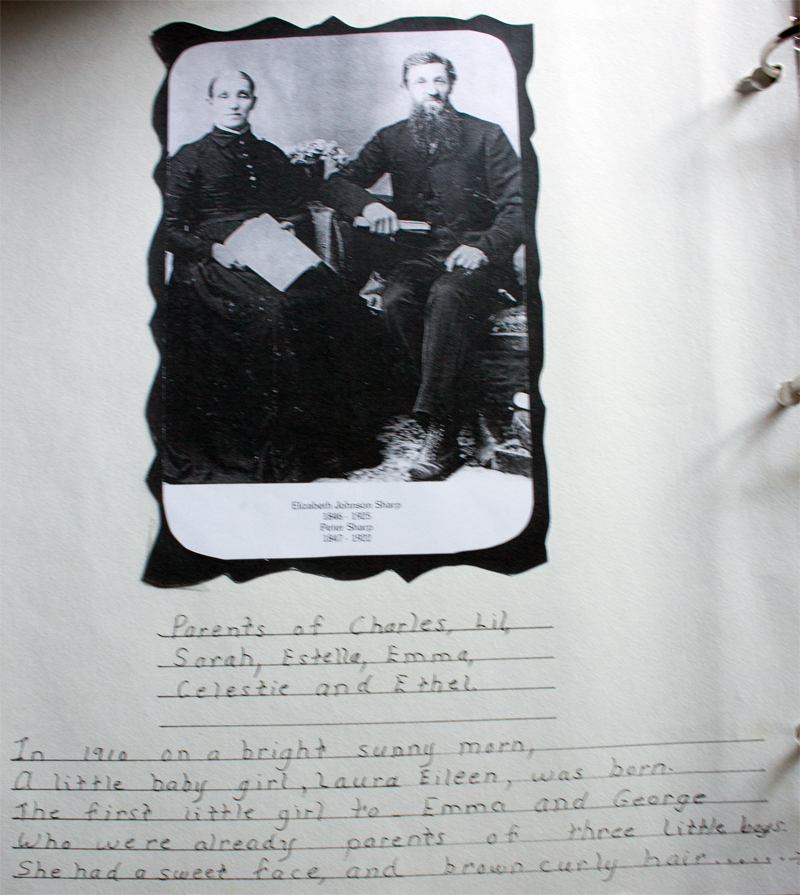 Elizabeth Johnson Sharp
1846 - 1925
Peter Sharp
1847 - 1922
Parents of Charles, Lil,
Sarah, Estella, Emma,
Celestie and Ethel.
In 1910 on a bright sunny morn,
A little baby girl, Laura Eileen, was born.
The first little girl to Emma and George
Who were already parents of three little boys.
She had a sweet face, and brown curly hair......→